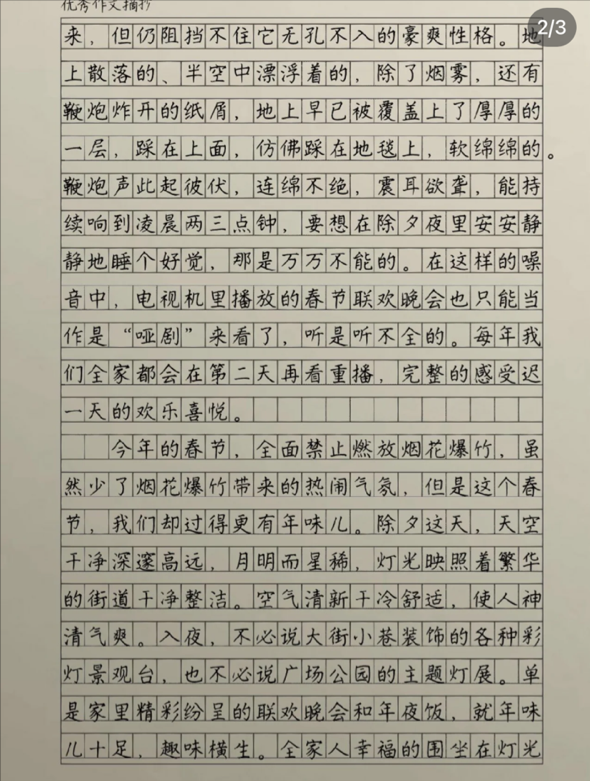 优秀作文摘抄
2/3
来，但仍阻挡不住它无孔不入的豪爽性格。地
上散落的、半空中漂浮着的，除了烟雾，还有
鞭炮炸开的纸屑，地上早已被覆盖上了厚厚的
一层，踩在上面，仿佛踩在地毯上，软绵绵的。
鞭炮声此起彼伏，连绵不绝，震耳欲聋，能持
续响到凌晨两三点钟，要想在除夕夜里安安静
静地睡个好觉，那是万万不能的。在这样的噪
音中，电视机里播放的春节联欢晚会也只能当
作是“哑剧”来看了，听是听不全的。每年我
们全家都会在第二天再看重播，完整的感受迟
一天的欢乐喜悦。
今年的春节，全面禁止燃放烟花爆竹，虽
然少了烟花爆竹带来的热闹气氛，但是这个春
节，我们却过得更有年味儿。除夕这天，天空
干净深邃高远，月明而星稀，灯光映照着繁华
的街道干净整洁。空气清新干冷舒适，使人神
清气爽。入夜，不必说大街小巷装饰的各种彩
灯景观台，也不必说广场公园的主题灯展。单
是家里精彩纷呈的联欢晚会和年夜饭，就年味
儿十足，趣味横生。全家人幸福的围坐在灯光